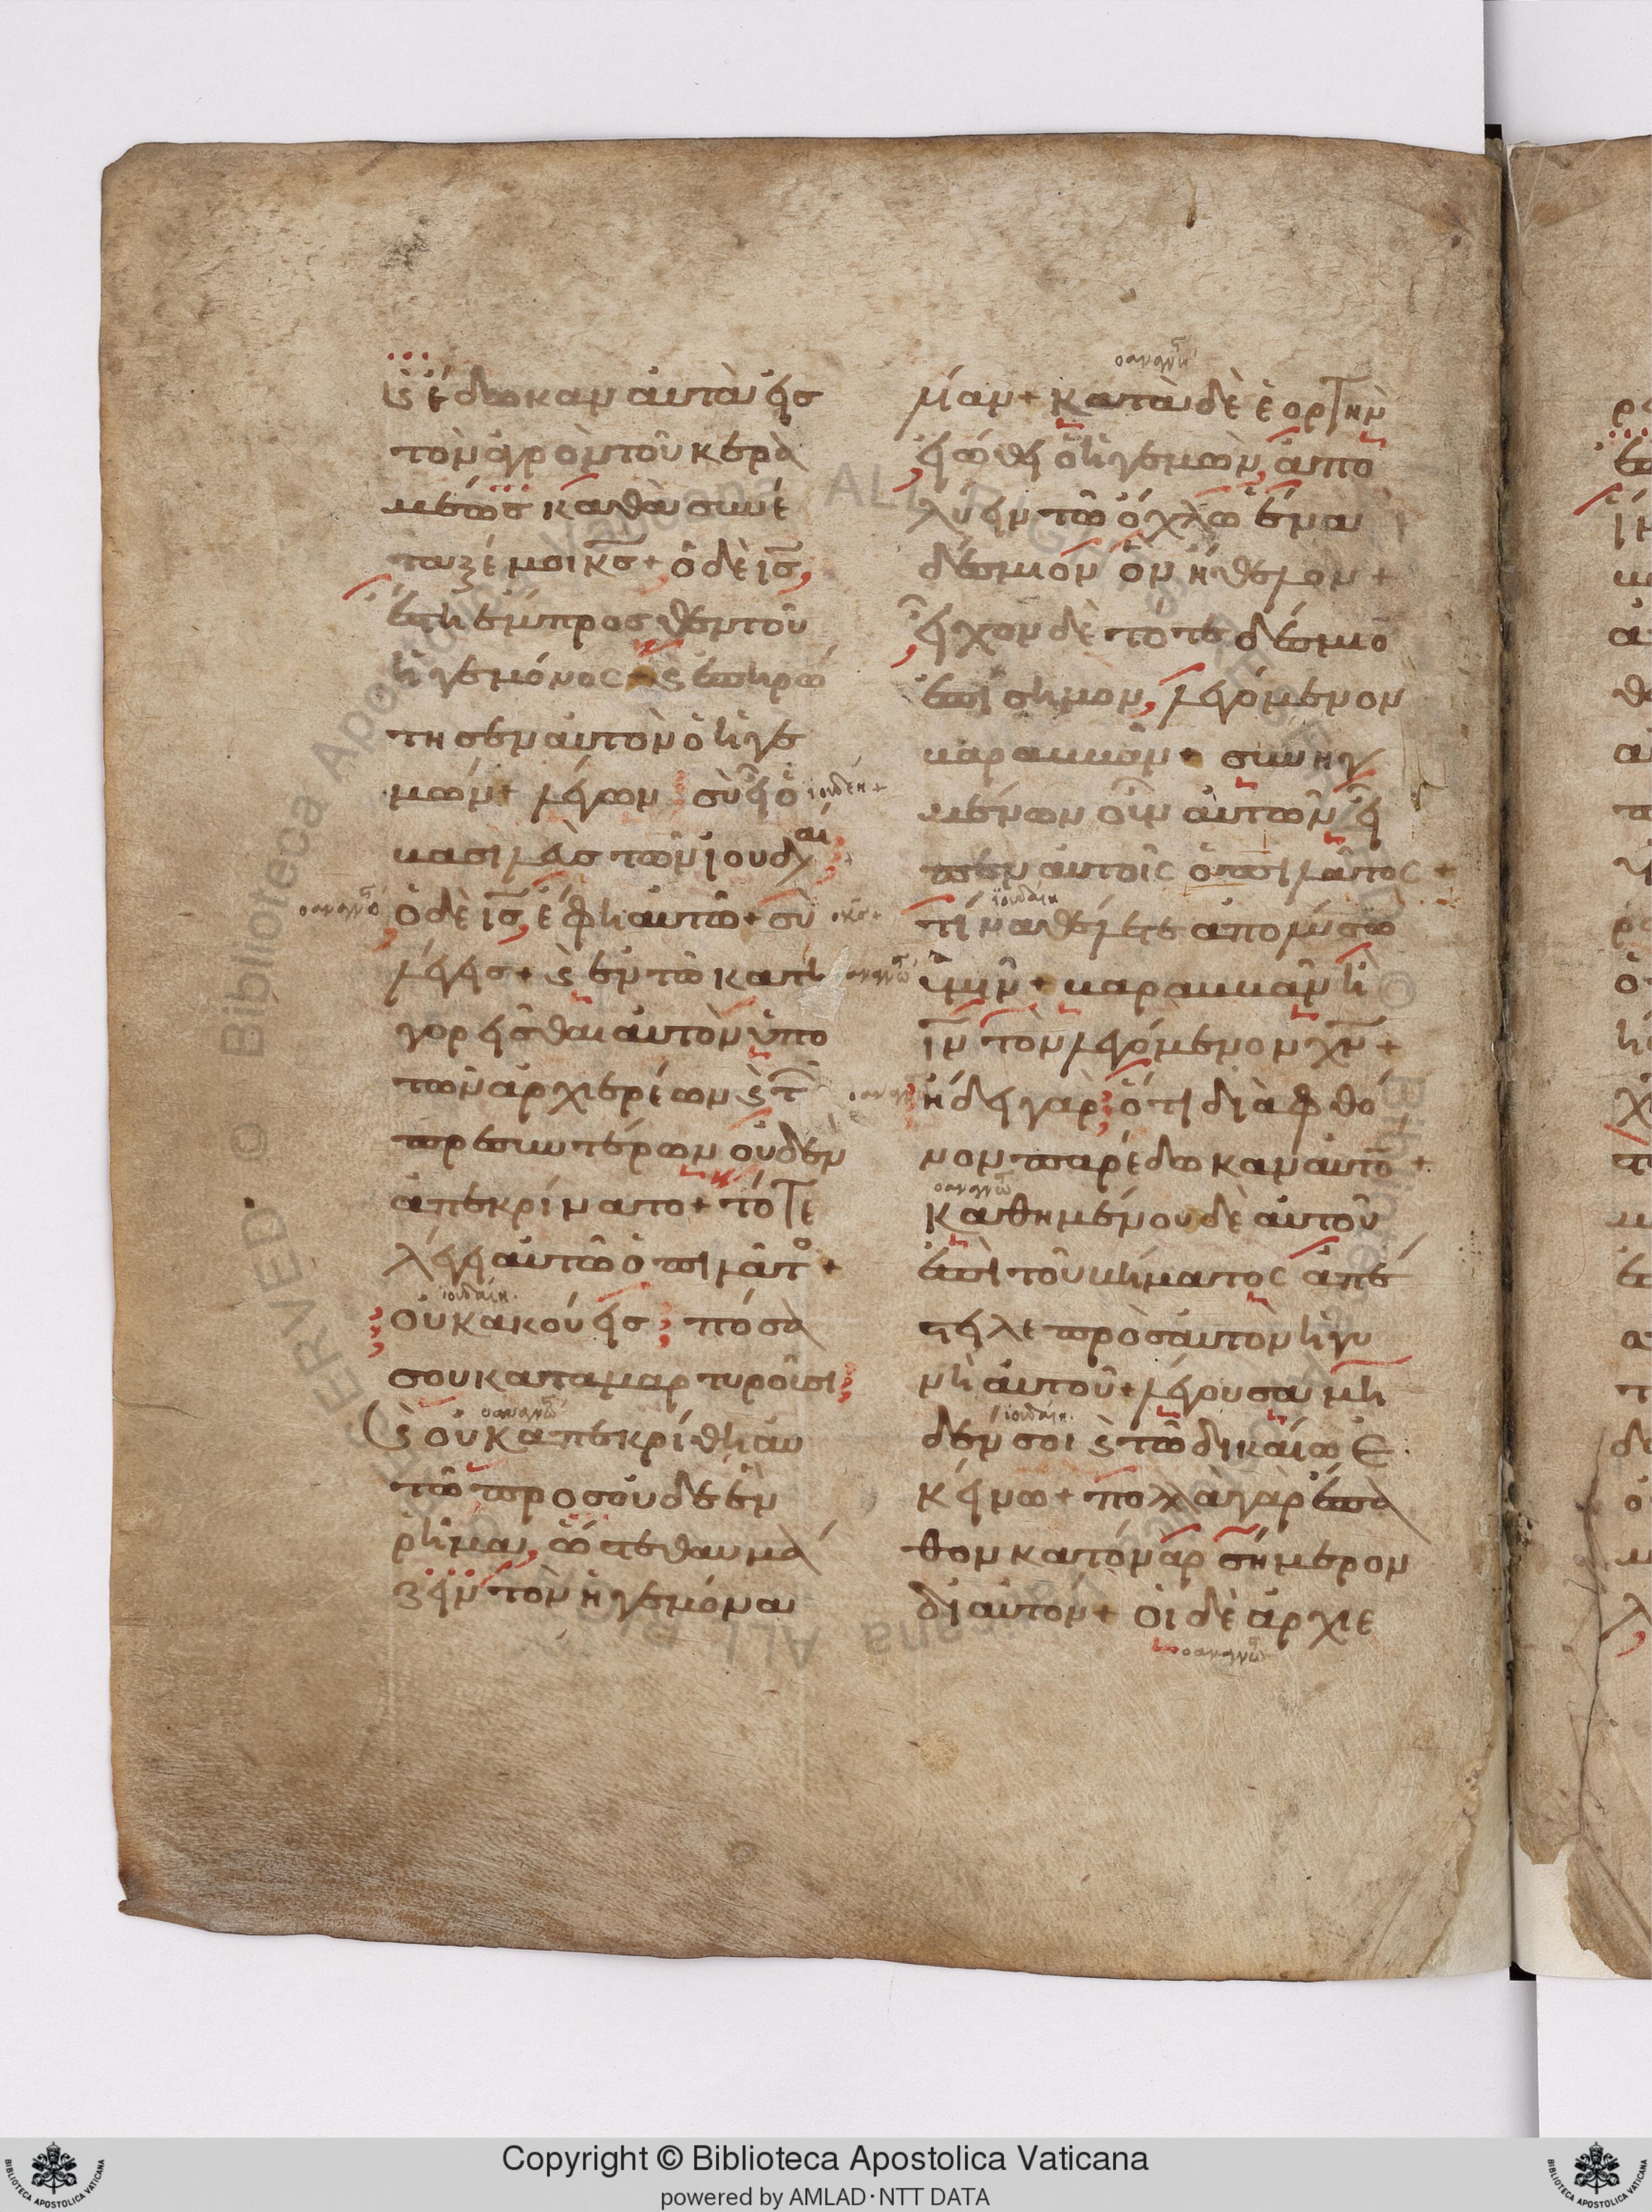 ϗ ἔδωκαν αὐτὰ εἰσ
τὸν ἀγρὸν τοῦ κερα
μέωσ καθὰ συνέ
ταξέ μοι κσ + ὁ δὲ ισ,
ἔστη ἔμπροσθεν τοῦ
ἡγεμόνος ϗ ἐπηρώ
τησεν αὐτὸν ὁ ἡγε
μών + λέγων σὺ εἶ ὁ
βασιλεὺσ τῶν ἰουδαί
ὁ δὲ ισ, ἔφη αὐτῶ + σὺ
λέγεισ + ϗ ἐν τῶ κατη
γορεῖσθαι αὐτὸν ὑπο
τῶν ἀρχιερέων ϗ τ
πρεσβυτέρων οὐδὲν
ἀπεκρίνατο + τότε
λέγει αὐτῶ ὁ πιλᾶτο +
οὐκ ἀκούεισ; πόσα
σου καταμαρτυροῦσι;
ϗ οὐκ ἀπεκρίθη αὐ
τῶ προσ οὐδὲ ἓν
ῥῆμα, ὥστε θαυμά
ζειν τὸν ἡγεμόνα
λίαν + κατὰ δὲ ἑορτὴν
εἰώθει ὁ ἡγεμὼν, ἀπο
λύειν τῶ ὄχλω ἕνα
δέσμιον ὃν ἤθελον +
εἶχον δὲ τότε δέσμιο
ἐπίσημον, λεγόμενον
βαραββᾶν + συνηγ
μένων οὖν αὐτῶν εἶ
πεν αὐτοῖς ὁ πιλᾶτος +
τίνα θέλετε ἀπολύσω
ὑμῖν + βαραββᾶν ἢ
ιν τὸν λεγόμενον χν +
ἤδει γὰρ; ὅτι διὰ φθό
νον παρέδωκαν αὐτὸ +
καθημένου δὲ αὐτοῦ
ἐπὶ τοῦ βήματος ἀπέ
στειλε πρὸσ αὐτὸν ἡ γυ
νὴ αὐτοῦ + λέγουσα μη
δέν σοι ϗ τῶ δικαίω ἐ
κείνω + πολλὰ γὰρ ἔπα
θον κατόναρ σήμερον
δι αὐτόν + οἱ δὲ ἀρχιε